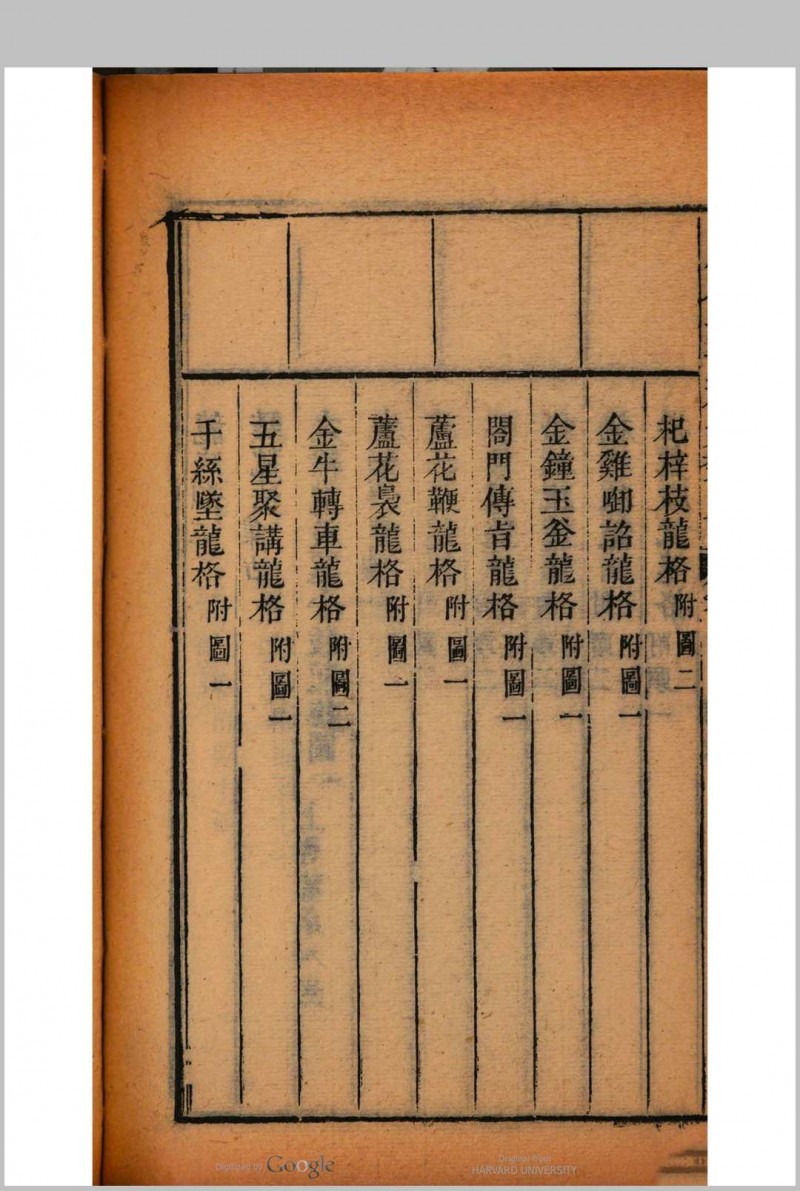 杞梓枝龍格附圖二
金雞啣詔龍格附圖一
金鐘玉釜龍格附圖一
閣門傳旨龍格附圖一
蘆花鞭龍格附圖一
蘆花裊龍格附圖一
金牛轉車龍格附圖二
五星聚講龍格附圖一
千絲墜龍格附圖一
Digitized by Google
Original from
HARVARD UNIVERSITY